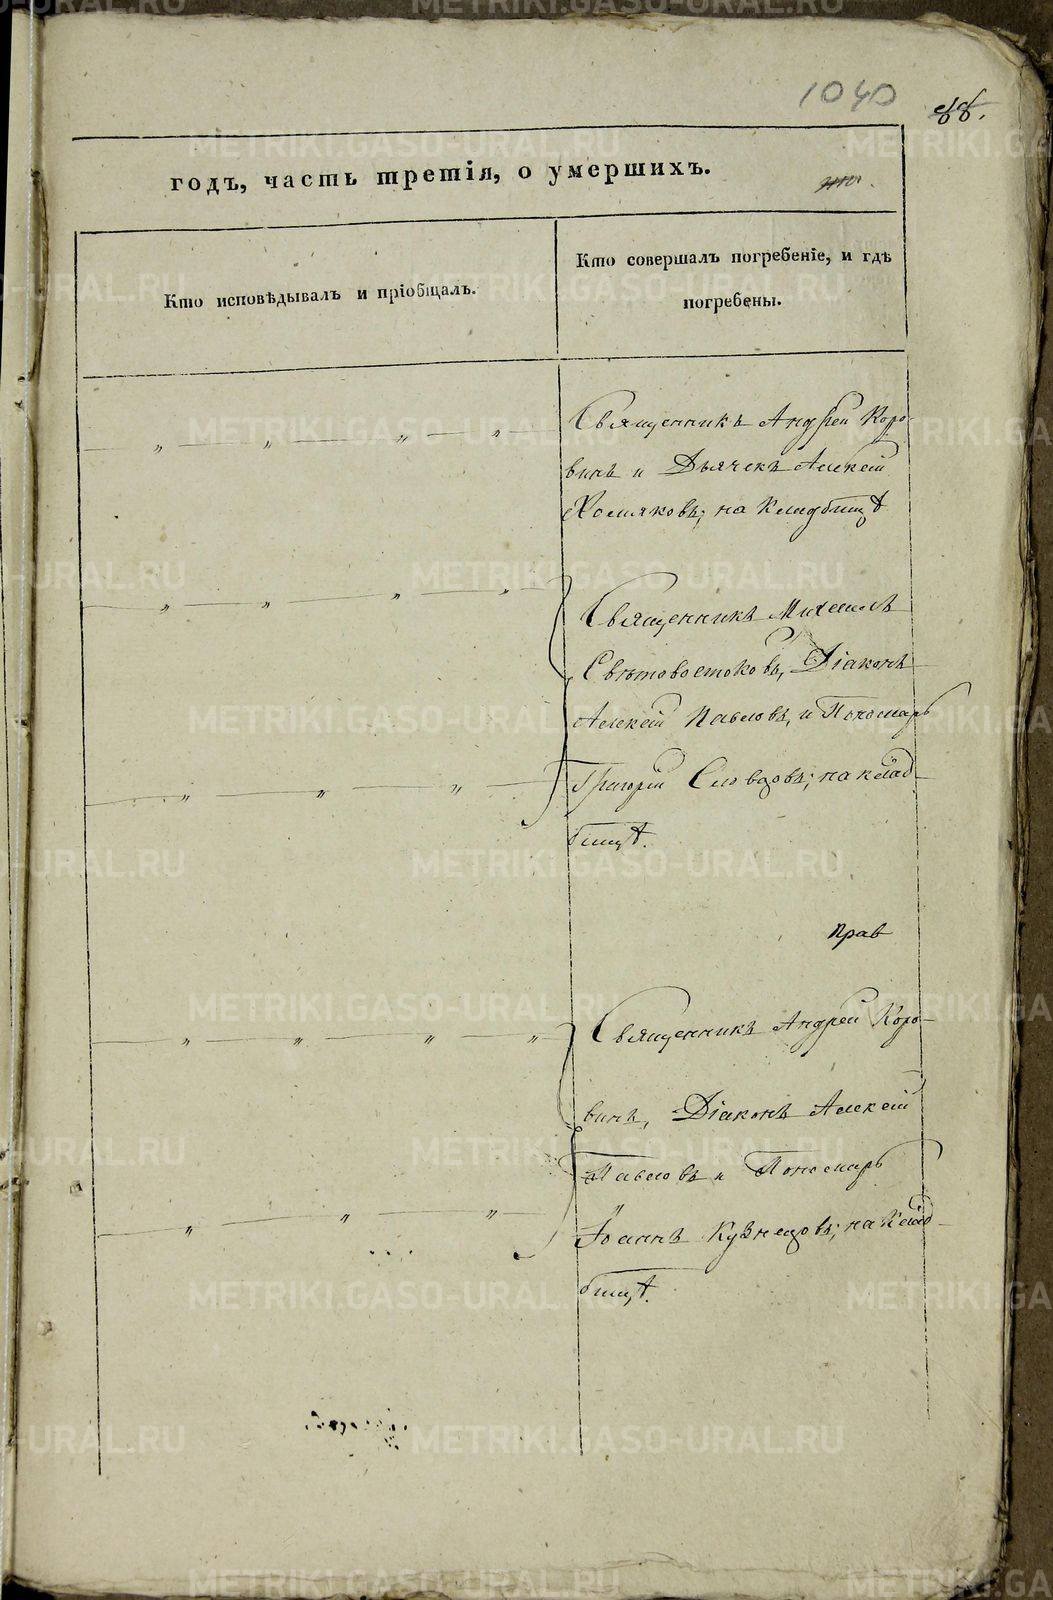 1040
88.
годъ, часть третія, о умершихъ.
Кто исповѣдывалъ и пріобщалъ.
Кто совершалъ погребеніе, и гдѣ
погребены.
Священникъ Андрей Коро-
винъ и Дьячекъ Алексій
Хомяковъ; на кладбищѣ
Священникъ Михаилъ
Свѣтовостоковъ, Діаконъ
Алексій Павловъ, и Пономарь
Григорій Словцовъ; на клад-
бищѣ.
прав
Священникъ Андрей Коро-
винъ, Діаконъ Алексій
Павловъ и Пономарь
Іоаннъ Кузнецовъ; на клад-
бищѣ.
METRIKI.GASO-URAL.RU